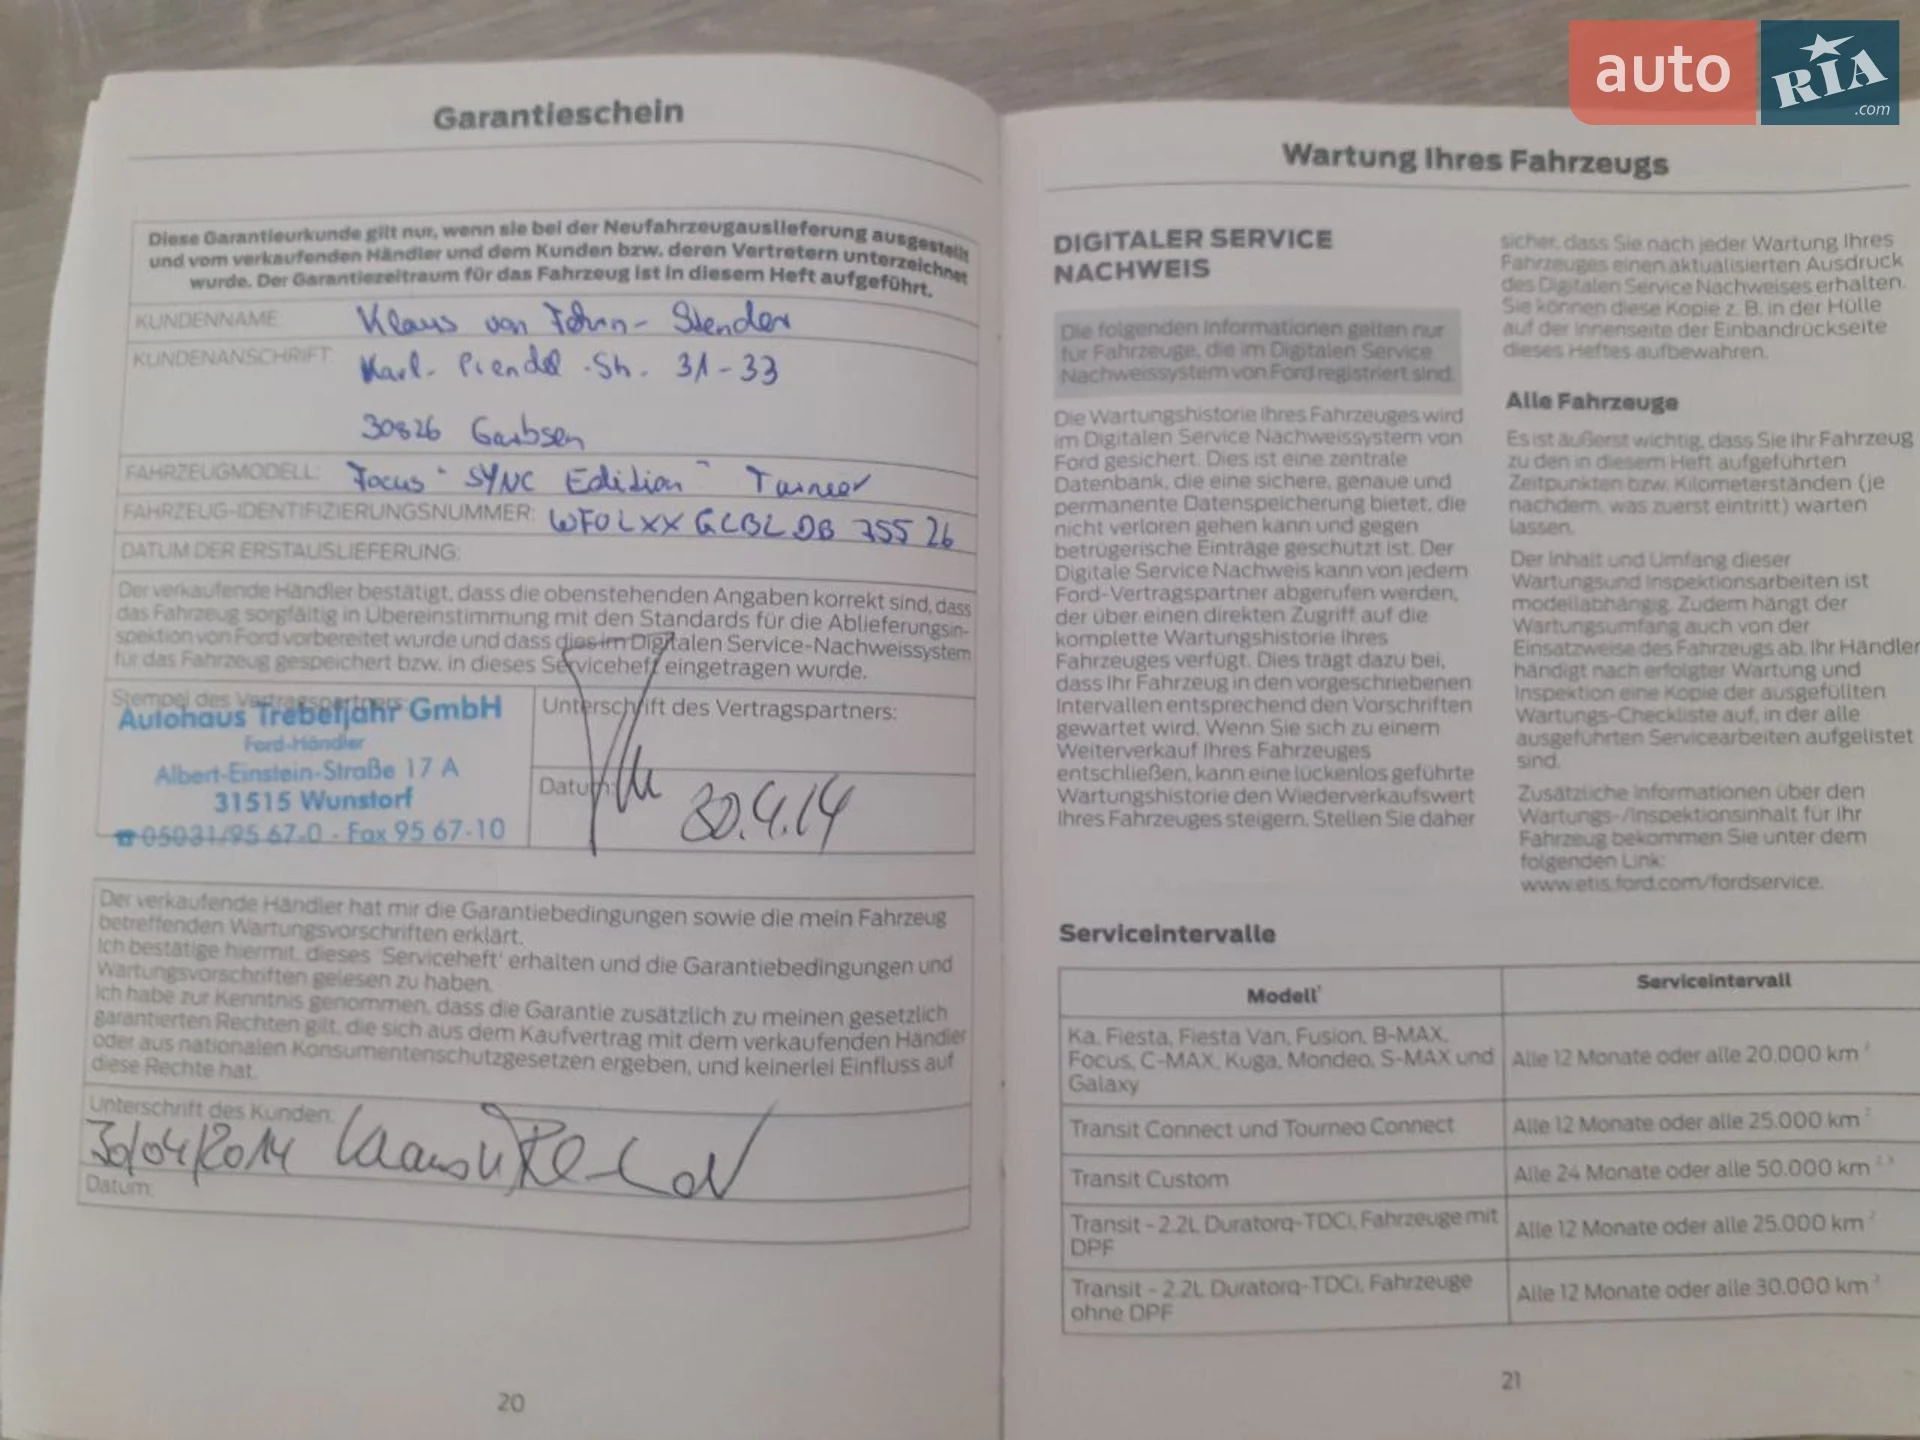 auto
RIA
.com
Garantieschein
Diese Garantieurkunde gilt nur, wenn sie bei der Neufahrzeugauslieferung ausgestellt
und vom verkaufenden Händler und dem Kunden bzw. deren Vertretern unterzeichnet
wurde. Der Garantiezeitraum für das Fahrzeug ist in diesem Heft aufgeführt.
KUNDENNAME: Klaus von - Stender
KUNDENANSCHRIFT: Karl- 31-33
30826 Garbsen
FAHRZEUGMODELL: Focus "SYNC Edition" Turnier
FAHRZEUG-IDENTIFIZIERUNGSNUMMER: WF0LXXGCBLDB75526
DATUM DER ERSTAUSLIEFERUNG:
Der verkaufende Händler bestätigt, dass die obenstehenden Angaben korrekt sind, dass
das Fahrzeug sorgfältig in Übereinstimmung mit den Standards für die Ablieferungsin-
spektion von Ford vorbereitet wurde und dass dies im Digitalen Service-Nachweissystem
für das Fahrzeug gespeichert bzw. in dieses Serviceheft eingetragen wurde.
Stempel des Vertragspartners:
Autohaus Trebeljahr GmbH
Ford-Händler
Albert-Einstein-Straße 17 A
31515 Wunstorf
☎ 05031/95 67-0 · Fax 95 67-10
Unterschrift des Vertragspartners:
Datum: 30.4.14
Der verkaufende Händler hat mir die Garantiebedingungen sowie die mein Fahrzeug
betreffenden Wartungsvorschriften erklärt.
Ich bestätige hiermit, dieses 'Serviceheft' erhalten und die Garantiebedingungen und
Wartungsvorschriften gelesen zu haben.
Ich habe zur Kenntnis genommen, dass die Garantie zusätzlich zu meinen gesetzlich
garantierten Rechten gilt, die sich aus dem Kaufvertrag mit dem verkaufenden Händler
oder aus nationalen Konsumentenschutzgesetzen ergeben, und keinerlei Einfluss auf
diese Rechte hat.
Unterschrift des Kunden:
30/04/2014
Datum:
20
Wartung Ihres Fahrzeugs
DIGITALER SERVICE
NACHWEIS
Die folgenden Informationen gelten nur
für Fahrzeuge, die im Digitalen Service
Nachweissystem von Ford registriert sind.
Die Wartungshistorie Ihres Fahrzeuges wird
im Digitalen Service Nachweissystem von
Ford gesichert. Dies ist eine zentrale
Datenbank, die eine sichere, genaue und
permanente Datenspeicherung bietet, die
nicht verloren gehen kann und gegen
betrügerische Einträge geschützt ist. Der
Digitale Service Nachweis kann von jedem
Ford-Vertragspartner abgerufen werden,
der über einen direkten Zugriff auf die
komplette Wartungshistorie Ihres
Fahrzeuges verfügt. Dies trägt dazu bei,
dass Ihr Fahrzeug in den vorgeschriebenen
Intervallen entsprechend den Vorschriften
gewartet wird. Wenn Sie sich zu einem
Weiterverkauf Ihres Fahrzeuges
entschließen, kann eine lückenlos geführte
Wartungshistorie den Wiederverkaufswert
Ihres Fahrzeuges steigern. Stellen Sie daher
sicher, dass Sie nach jeder Wartung Ihres
Fahrzeuges einen aktualisierten Ausdruck
des Digitalen Service Nachweises erhalten.
Sie können diese Kopie z. B. in der Hülle
auf der Innenseite der Einbandrückseite
dieses Heftes aufbewahren.
Alle Fahrzeuge
Es ist äußerst wichtig, dass Sie Ihr Fahrzeug
zu den in diesem Heft aufgeführten
Zeitpunkten bzw. Kilometerständen (je
nachdem, was zuerst eintritt) warten
lassen.
Der Inhalt und Umfang dieser
Wartungsund Inspektionsarbeiten ist
modellabhängig. Zudem hängt der
Wartungsumfang auch von der
Einsatzweise des Fahrzeugs ab. Ihr Händler
händigt nach erfolgter Wartung und
Inspektion eine Kopie der ausgefüllten
Wartungs-Checkliste auf, in der alle
ausgeführten Servicearbeiten aufgelistet
sind.
Zusätzliche Informationen über den
Wartungs-/Inspektionsinhalt für Ihr
Fahrzeug bekommen Sie unter dem
folgenden Link:
www.etis.ford.com/fordservice.
Serviceintervalle
Modell¹ Serviceintervall
Ka, Fiesta, Fiesta Van, Fusion, B-MAX,
Focus, C-MAX, Kuga, Mondeo, S-MAX und
Galaxy
Alle 12 Monate oder alle 20.000 km ²
Transit Connect und Tourneo Connect Alle 12 Monate oder alle 25.000 km ²
Transit Custom Alle 24 Monate oder alle 50.000 km ²˒³
Transit - 2.2L Duratorq-TDCi, Fahrzeuge mit
DPF
Alle 12 Monate oder alle 25.000 km ²
Transit - 2.2L Duratorq-TDCi, Fahrzeuge
ohne DPF
Alle 12 Monate oder alle 30.000 km ²
21